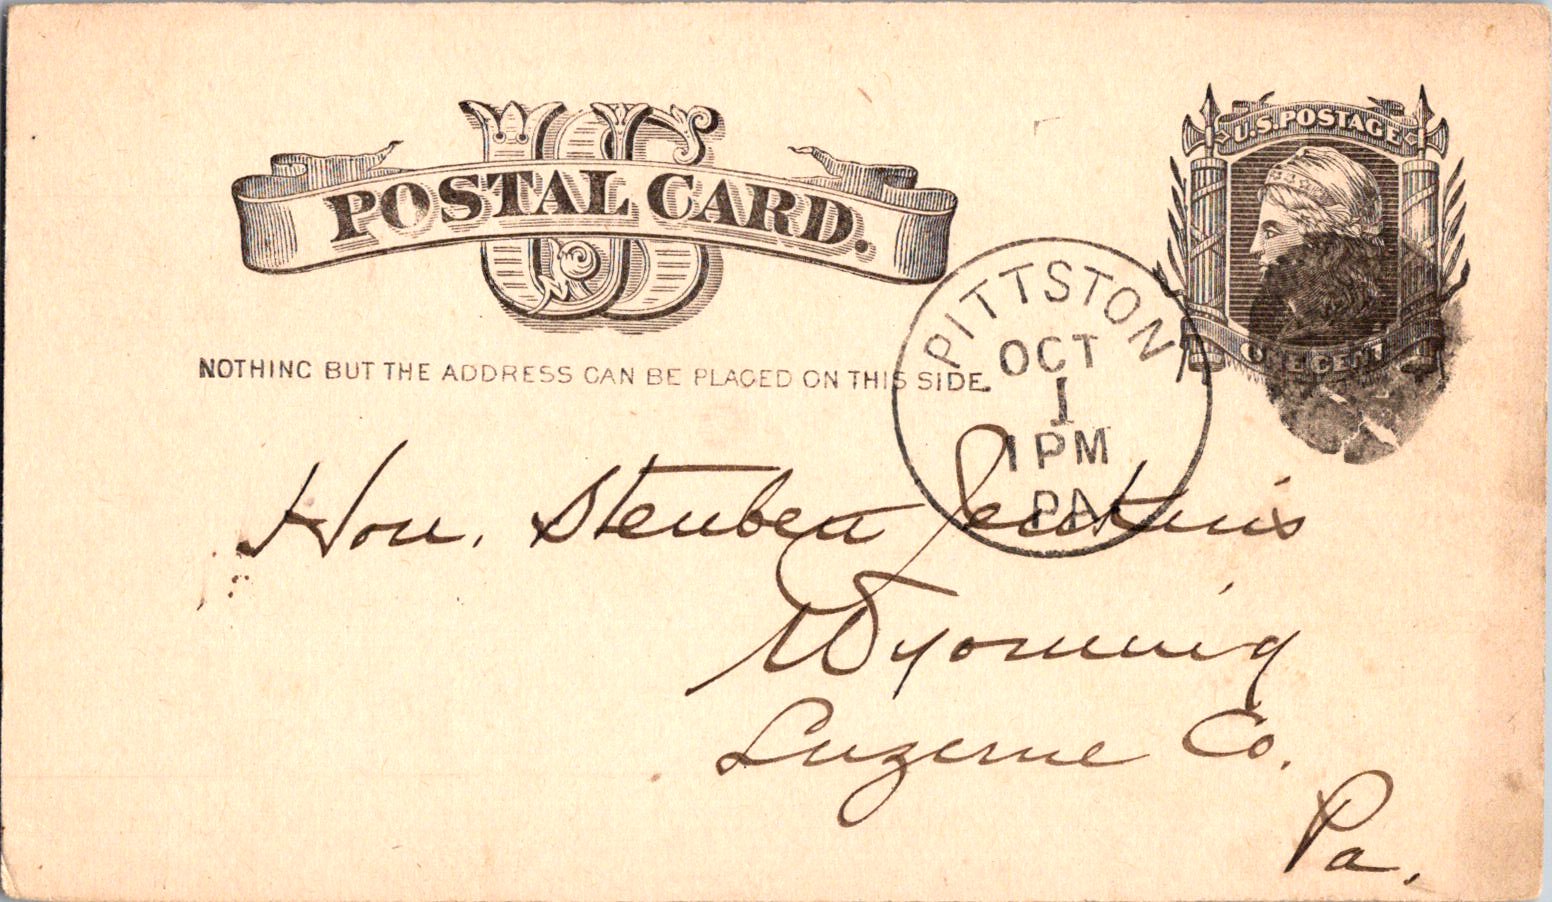 US
POSTAL CARD.
U.S. POSTAGE
ONE CENT
NOTHING BUT THE ADDRESS CAN BE PLACED ON THIS SIDE.
PITTSTON
OCT
1
1 PM
PA
Hon. Steuben Jenkins
Wyoming
Luzerne Co.
Pa.